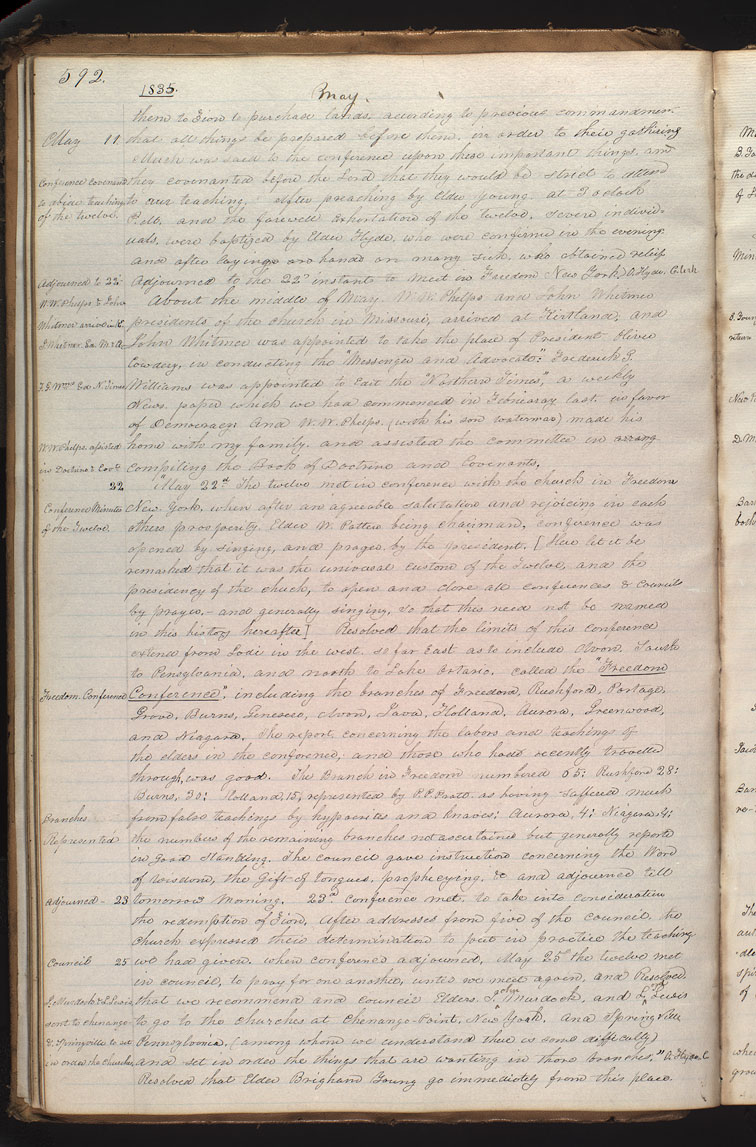 592.
1835.
May.
them to Zion to purchase lands, according to previous commandment
May 11
that all things be prepared before them, in order to their gathering
Much was said to the conference upon these important things, and
Conference covenant
they covenanted before the Lord that they would be strict to attend
to abide teaching
to our teaching. After preaching by Elder Young at 5 o clock
of the twelve.
P.M. and the farewell exhortation of the twelve, seven individ-
uals, were baptized by Elder Hyde, who were confirmed in the evening.
and after laying on hands on many sick, who obtained relief
Adjourned to 22d
Adjourned to the 22d instant to meet in Freedom New York, O. Hyde, Clerk
W.W. Phelps & John
About the middle of May, W. W. Phelps and John Whitmer
Whitmer arrive in K.
presidents of the church in Missouri, arrived at Kirtland, and
J. Whitmer. Ed. M. & A.
John Whitmer was appointed to take the place of President Oliver
Cowdery, in conducting the "Messenger and Advocate." Frederick G.
F. G. Wms Ed. N. Times
Williams was appointed to Edit the "Northern Times", a weekly
News-paper which we had commenced in February last in favor
of Democracy. And W. W. Phelps, (with his son waterman) made his
W W Phelps. assisted
home with my family. and assisted the committee in arrang
in Doctrine & Covts.
compiling the Book of Doctrine and Covenants.
22
"May 22d. The twelve met in conference with the church in Freedom
Conference Minutes
New York, when after an agreeable salutation and rejoicing in each
of the Twelve.
others prosperity. Elder W. Patten being chairman, conference was
opened by singing, and prayer by the president. [Here let it be
remarked that it was the universal custom of the Twelve, and the
presidency of the church, to open and close all conferences & councils
by prayer, - and generally singing, so that this need not be named
in this history hereafter] Resolved that the limits of this conference
extend from Lodi in the west, so far East as to include Avon, South
to Pensylvania, and north to Lake Ontario. called the "Freedom
Freedom. Conference
Conference". including the branches of Freedom, Rushford, Portage,
Grove, Burns, Geneseo, Avon, Java, Holland, Aurora, Greenwood,
and Niagara. The report, concerning the labors and teachings of
the elders in the conference, and those who had recently travelled
through, was good. The Branch in Freedom numbered 65: Rushford 28:
Burns, 30: Holland, 15, represented by P. P. Pratt. as having suffered much
Branches
from false teachings by hyppocrites and knaves: Aurora, 4: Niagara 4:
Represented
the numbers of the remaining branches not ascertained but generally reported
in good standing. The council gave instruction concerning the Word
of Wisdom, the Gift of tongues, prophecying, &c and adjourned till
Adjourned - 23
tomorrow morning. 23d. Conference met. to take into consideration
the redemption of Zion. After addresses from five of the council. the
church expressed their determination to put in practice the teaching
Council 25
we had given. when conference adjourned. May 25th the twelve met
in council, to pray for one another, until we meet again, and Resolved,
J. Murdock & L. Lewis
that we recommend and council Elders. John Murdock, and L. Lewis
sent to chenango
to go to the churches at Chenango-Point, New York. and Springville
& Springville to set
Pennsylvania, (among whom we understand there is some difficulty)
in order the churches
and set in order the things that are wanting in those branches."
Resolved that Elder Brigham Young go immediately from this place